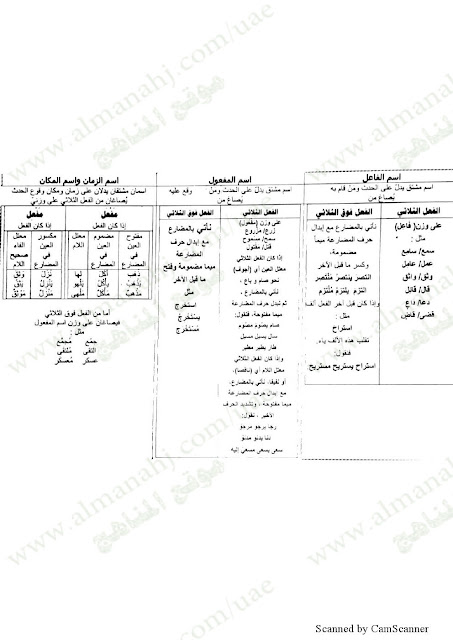 اسم الفاعل
اسم مشتق يدل على الحدث ومن قام به
يُصاغ من
الفعل الثلاثي
على وزن( فاعل)
مثل :
سمع/ سامع
عمل/ عامل
وثق/ واثق
قال/ قائل
دعا/ داعٍ
قضى/ قاضٍ
الفعل فوق الثلاثي
نأتي بالمضارع مع إبدال
حرف المضارعة ميماً
مضمومة،
وكسر ما قبل الآخر
انتصر ينتصر مُنتَصِر
التزم يلتزم مُلتَزِم
وإذا كان قبل آخر الفعل ألف
مثل :
استراح
تقلب هذه الألف ياء،
فنقول:
استراح يستريح مستريح.
اسم المفعول
اسم مشتق يدلّ على الحدث ومن وقع عليه
يُصاغ من
الفعل الثلاثي
على وزن (مفعول)
زرع/ مزروع
سمح/ مسموح
قتل/ مقتول
إذا كان الفعل الثلاثي
معتل العين أي (أجوف)
نحو صام و باع ،
نأتي بالمضارع ،
ثم نبدل حرف المضارعة
ميما مفتوحة، فنقول:
صام يصوم مصوم
سال يسيل مسيل
طار يطير مطير
وإذا كان الفعل الثلاثي
معتل اللام أي (ناقصا)،
أو لفيفا، نأتي بالمضارع،
مع إبدال حرف المضارعة
ميما مفتوحة ، وتشديد الحرف
الأخير ، نقول:
رجا يرجو مرجو
دنا يدنو مدنو
سعى يسعى مسعي إليه
الفعل فوق الثلاثي
نأتي بالمضارع
مع إبدال حرف
المضارعة
ميما مضمومة وفتح
ما قبل الآخر
مثل
استخرج
يستخرج
مُسْتَخْرَج
اسم الزمان واسم المكان
اسمان مشتقان يدلان على زمان ومكان وقوع الحدث
يُصاغان من الفعل الثلاثي على وزنيْ
مَفْعَل
إذا كان الفعل
مفتوح العين في المضارع
مضموم العين في المضارع
معتل اللام
ذهب أكل لها
يذهب يأكل يلهو
مَذْهَب مأكل مَلْهى
مَفْعِل
إذا كان الفعل
مكسور العين في المضارع
معتل الفاء صحيح اللام
نزل وثق
ينزل يثق
منزل مَوْثِق
أما من الفعل فوق الثلاثي
فيصاغان على وزن اسم المفعول
مثل :
جمّع مُجَمَّع
التقى مُلتقى
عسكر مُعسكر
www.almanahj.com/uae
موقع المناهج
Scanned by CamScanner